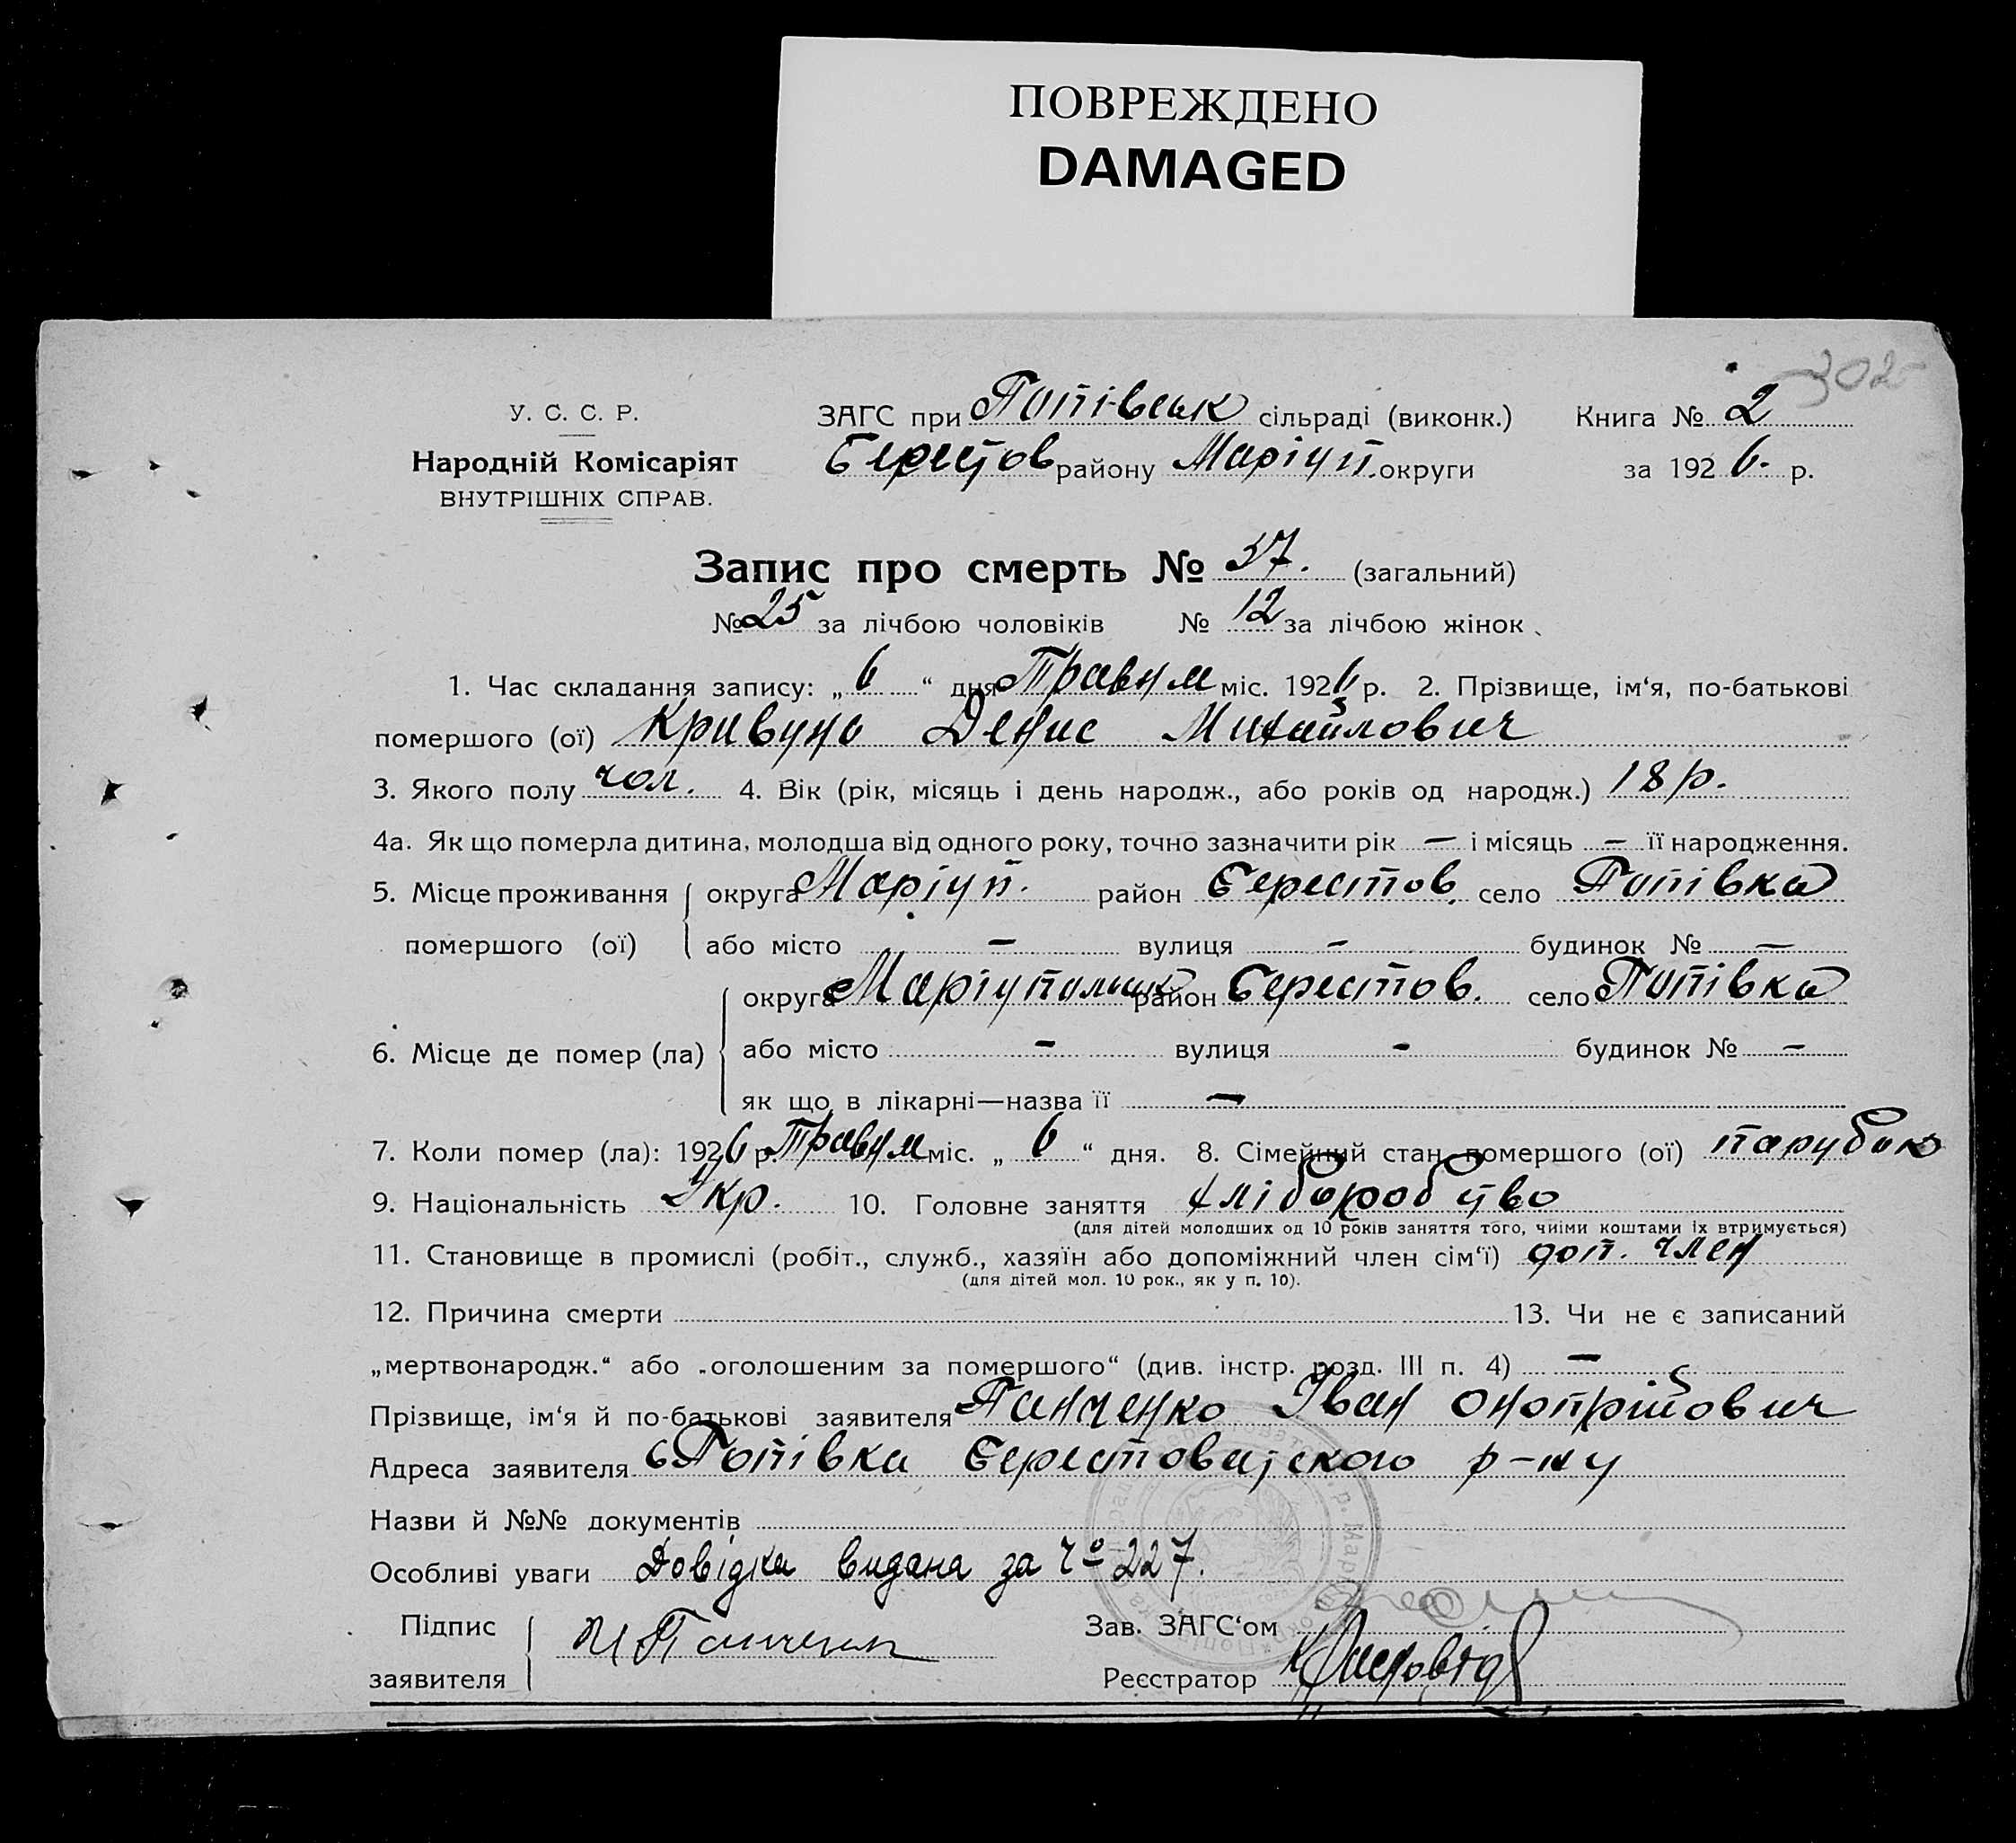 ПОВРЕЖДЕНО
DAMAGED
302
У. С. С. Р.
Народній Комісаріят
ВНУТРІШНІХ СПРАВ.
ЗАГС при Попівськ сільраді (виконк.) Книга № 2
Берестов району Маріуп. округи за 1926. р.
Запис про смерть № 37. (загальний)
№ 25 за лічбою чоловіків № 12 за лічбою жінок
1. Час складання запису: „6“ дня Травня міс. 1926 р. 2. Прізвище, ім‘я, по-батькові
помершого (ої) Кривунь Денис Михайлович
3. Якого полу чол. 4. Вік (рік, місяць і день народж., або років од народж.) 18 р.
4а. Як що померла дитина, молодша від одного року, точно зазначити рік — і місяць — її народження.
5. Місце проживання округа Маріуп. район Берестов. село Попівка
помершого (ої) або місто — вулиця — будинок № —
округа Маріупольськ район Берестов. село Попівка
6. Місце де помер (ла) або місто — вулиця — будинок № —
як що в лікарні—назва її —
7. Коли помер (ла): 1926 р. Травня міс. „6“ дня. 8. Сімейний стан помершого (ої) парубок
9. Національність Укр. 10. Головне заняття хліборобство
(для дітей молодших од 10 років заняття того, чиїми коштами їх втримується)
11. Становище в промислі (робіт., служб., хазяїн або допоміжний член сім‘ї) доп. член
(для дітей мол. 10 рок., як у п. 10).
12. Причина смерти 13. Чи не є записаний
„мертвонародж.“ або „оголошеним за помершого“ (див. інстр. розд. III п. 4) —
Прізвище, ім‘я й по-батькові заявителя Панченко Іван Онопрійович
Адреса заявителя с Попівка Берестоватського р-ну
Назви й №№ документів
Особливі уваги Довідка видана за Чо 227.
Підпис заявителя И Панченко
Зав. ЗАГС‘ом
Реєстратор